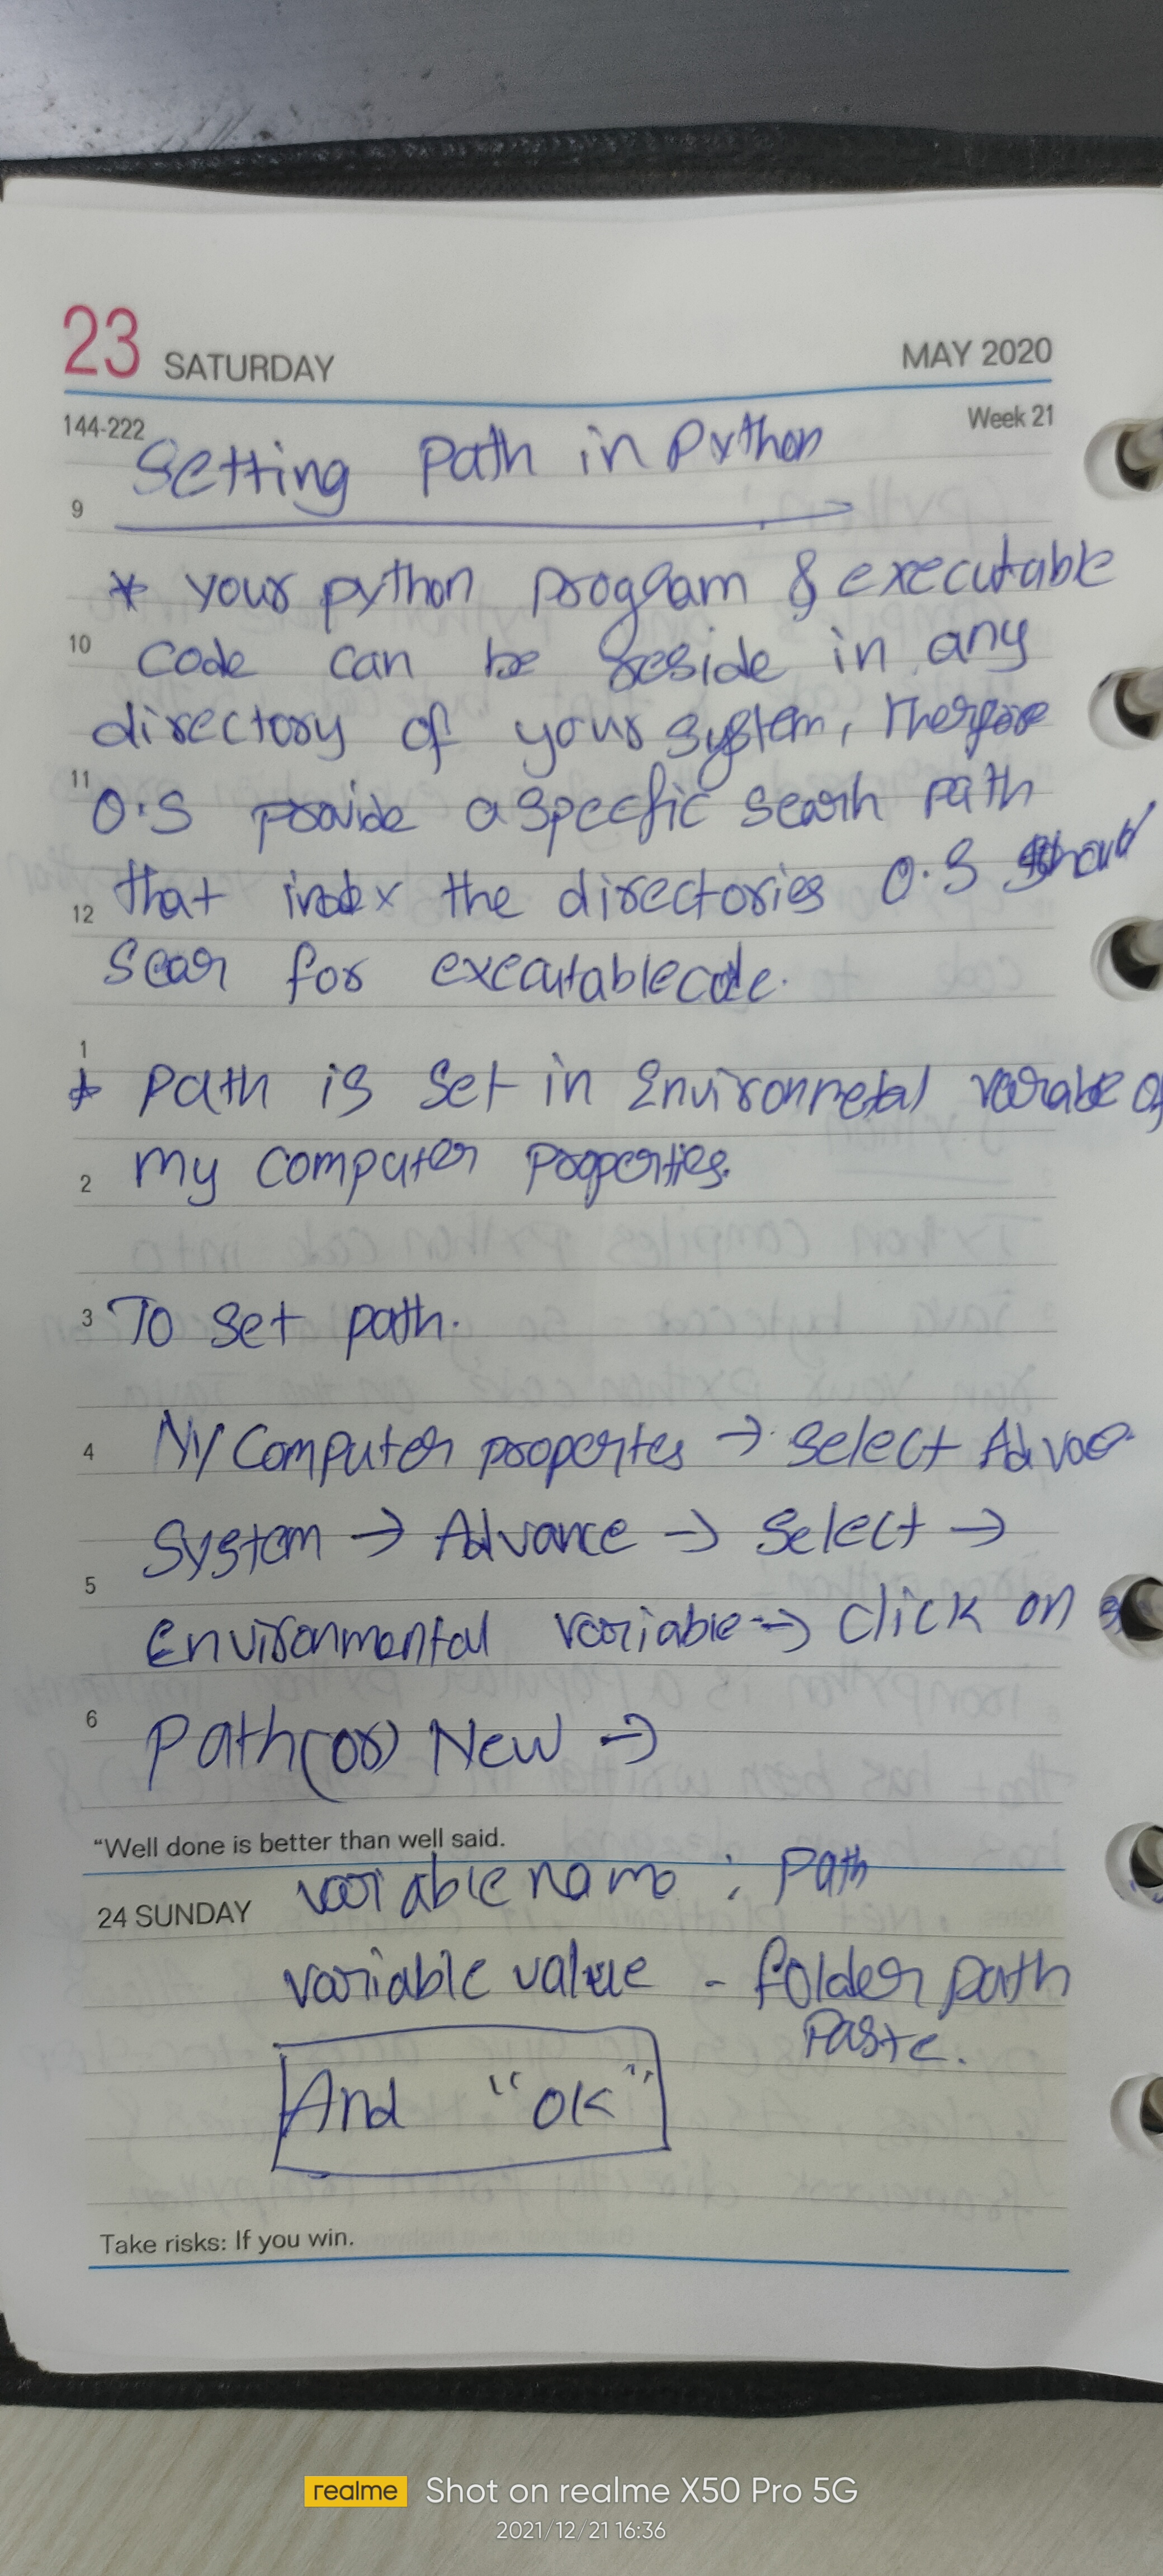 23 SATURDAY MAY 2020
144-222 Week 21
Setting Path in Python
9
* your python program & executable
10 code can be reside in any
directory of your system, Therefore
11 O.S provide a specfic searh path
that index the directories O.S should
12
Sear for executable code.
1
* Path is set in Environmetal varable of
2 my computer Properties.
3 To set path.
4 My Computer properties → Select
System → Advance → Select →
5
Environmental variable → Click on
6 Path (or) New →
“Well done is better than well said.
variable name : Path
24 SUNDAY
variable value - folder path
Paste.
And "OK"
Take risks: If you win.
realme Shot on realme X50 Pro 5G
2021/12/21 16:36